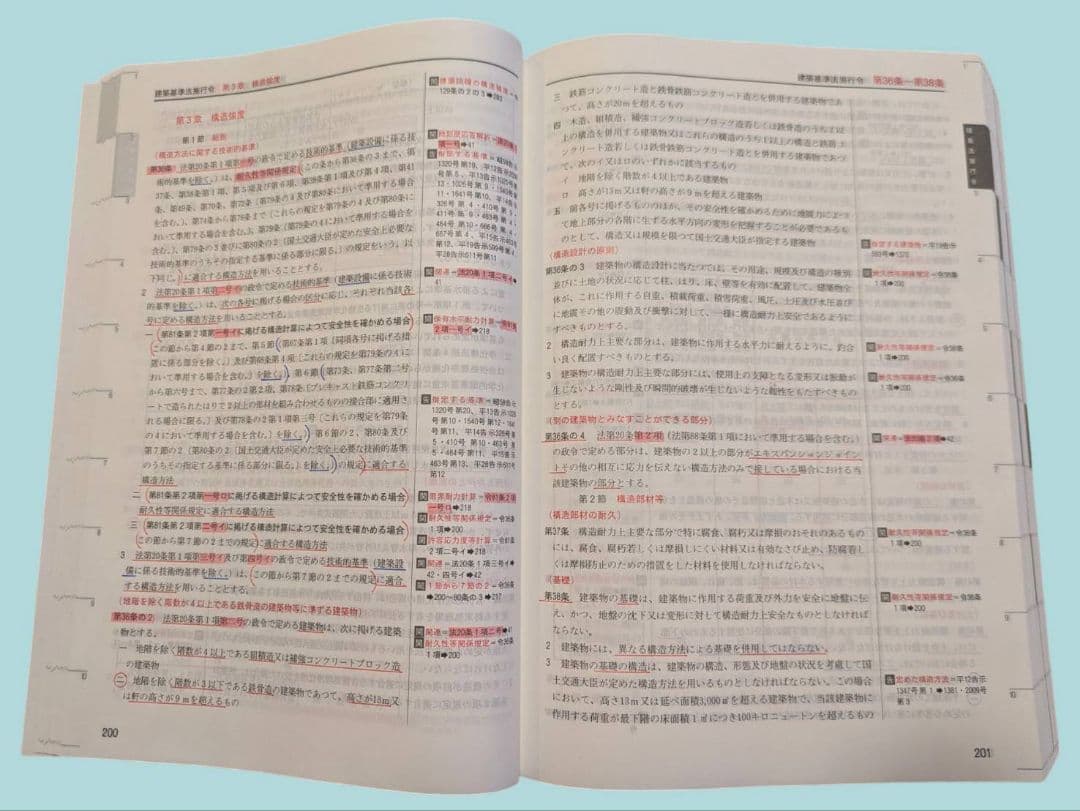 建築基準法施行令 第3章 構造強度
第3章 構造強度
第1節 総則
(構造方法に関する技術的基準)
第36条 法第20条第1項第一号の政令で定める技術的基準(建築設備に係る技
術的基準を除く。)は、耐久性等関係規定(この条から第36条の3まで、第
37条、第38条第1項、第5項及び第6項、第39条第1項及び第4項、第41
条、第49条、第70条、第72条(第79条の4及び第80条において準用する場合
を含む。)、第74条から第76条まで(これらの規定を第79条の4及び第80条に
おいて準用する場合を含む。)、第79条(第79条の4において準用する場合を
含む。)、第79条の3並びに第80条の2(国土交通大臣が定めた安全上必要な
技術的基準のうちその指定する基準に係る部分に限る。)の規定をいう。以
下同じ。)に適合する構造方法を用いることとする。
2 法第20条第1項第二号イの政令で定める技術的基準(建築設備に係る技術
的基準を除く。)は、次の各号に掲げる場合の区分に応じ、それぞれ当該各
号に定める構造方法を用いることとする。
一 第81条第2項第一号イに掲げる構造計算によつて安全性を確かめる場合
この節から第4節の2まで、第5節(第67条第1項(同項各号に掲げる措
置に係る部分を除く。)及び第68条第4項(これらの規定を第79条の4に
おいて準用する場合を含む。)を除く。)、第6節(第73条、第77条第二号か
ら第六号まで、第77条の2第2項、第78条(プレキャスト鉄筋コンクリ
ートで造られたはりで2以上の部材を組み合わせるものの接合部に適用さ
れる場合に限る。)及び第78条の2第1項第三号(これらの規定を第79条
の4において準用する場合を含む。)を除く。)、第6節の2、第80条及び
第7節の2(第80条の2(国土交通大臣が定めた安全上必要な技術的基準
のうちその指定する基準に係る部分に限る。)を除く。)の規定に適合する
構造方法
二 第81条第2項第一号ロに掲げる構造計算によつて安全性を確かめる場合
耐久性等関係規定に適合する構造方法
三 第81条第2項第二号イに掲げる構造計算によつて安全性を確かめる場合
この節から第7節の2までの規定に適合する構造方法
3 法第20条第1項第三号イ及び第四号イの政令で定める技術的基準(建築設
備に係る技術的基準を除く。)は、この節から第7節の2までの規定に適合
する構造方法を用いることとする。
(地階を除く階数が4以上である鉄骨造の建築物等に準ずる建築物)
第36条の2 法第20条第1項第二号の政令で定める建築物は、次に掲げる建築
物とする。
一 地階を除く階数が4以上である組積造又は補強コンクリートブロック造
の建築物
二 地階を除く階数が3以下である鉄骨造の建築物であつて、高さが13m又
は軒の高さが9mを超えるもの
129条の2の3➡283
項一号➡41
関連=法20条1項二号イ➡
41
関保有水平耐力計算=令81条
2項一号イ➡218
指定する基準=昭56告
関限界耐力計算=令81条2項
一号ロ➡218
関耐久性等関係規定=令36条
1項➡200
関許容応力度等計算=令81条
2項二号イ➡218
関関連=法20条1項三号イ➡
42・四号イ➡42
関1節から7節の2=令36条
➡200〜80条の3➡217
関関連=法20条1項二号➡41
関耐久性等関係規定=令36条
1項➡200
200
建築基準法施行令 第36条―第38条
三 鉄筋コンクリート造と鉄骨鉄筋コンクリート造とを併用する建築物であ
つて、高さが20mを超えるもの
四 木造、組積造、補強コンクリートブロック造若しくは鉄骨造のうち2以
上の構造を併用する建築物又はこれらの構造のうち1以上の構造と鉄筋コ
ンクリート造若しくは鉄骨鉄筋コンクリート造とを併用する建築物であつ
て、次のイ又はロのいずれかに該当するもの
イ 地階を除く階数が4以上である建築物
ロ 高さが13m又は軒の高さが9mを超える建築物
五 前各号に掲げるもののほか、その安全性を確かめるために地震力によつ
て地上部分の各階に生ずる水平方向の変形を把握することが必要であるも
のとして、構造又は規模を限つて国土交通大臣が指定する建築物
(構造設計の原則)
第36条の3 建築物の構造設計に当たつては、その用途、規模及び構造の種別
並びに土地の状況に応じて柱、はり、床、壁等を有効に配置して、建築物全
体が、これに作用する自重、積載荷重、積雪荷重、風圧、土圧及び水圧並び
に地震その他の震動及び衝撃に対して、一様に構造耐力上安全であるように
すべきものとする。
2 構造耐力上主要な部分は、建築物に作用する水平力に耐えるように、釣合
い良く配置すべきものとする。
3 建築物の構造耐力上主要な部分には、使用上の支障となる変形又は振動が
生じないような剛性及び瞬間的破壊が生じないような靭性をもたすべきもの
とする。
(別の建築物とみなすことができる部分)
第36条の4 法第20条第2項(法第88条第1項において準用する場合を含む。)
の政令で定める部分は、建築物の2以上の部分がエキスパンションジョイン
トその他の相互に応力を伝えない構造方法のみで接している場合における当
該建築物の部分とする。
第2節 構造部材等
(構造部材の耐久)
第37条 構造耐力上主要な部分で特に腐食、腐朽又は摩損のおそれのあるもの
には、腐食、腐朽若しくは摩損しにくい材料又は有効なさび止め、防腐若し
くは摩損防止のための措置をした材料を使用しなければならない。
(基礎)
第38条 建築物の基礎は、建築物に作用する荷重及び外力を安全に地盤に伝
え、かつ、地盤の沈下又は変形に対して構造耐力上安全なものとしなければ
ならない。
2 建築物には、異なる構造方法による基礎を併用してはならない。
3 建築物の基礎の構造は、建築物の構造、形態及び地盤の状況を考慮して国
土交通大臣が定めた構造方法を用いるものとしなければならない。この場合
において、高さ13m又は延べ面積3,000㎡を超える建築物で、当該建築物に
作用する荷重が最下階の床面積1㎡につき100キロニュートンを超えるもの
指定する建築物=平19告示
593号➡1370
関耐久性等関係規定=令36条
1項➡200
関耐久性等関係規定=令36条
1項➡200
関耐久性等関係規定=令36条
1項➡200
関関連=法20条2項➡42
関耐久性等関係規定=令36条
1項➡200
関耐久性等関係規定=令36条
1項➡200
告定めた構造方法=平12告示
1347号第1➡1381・2009号
第3
建築基準法施行令
201